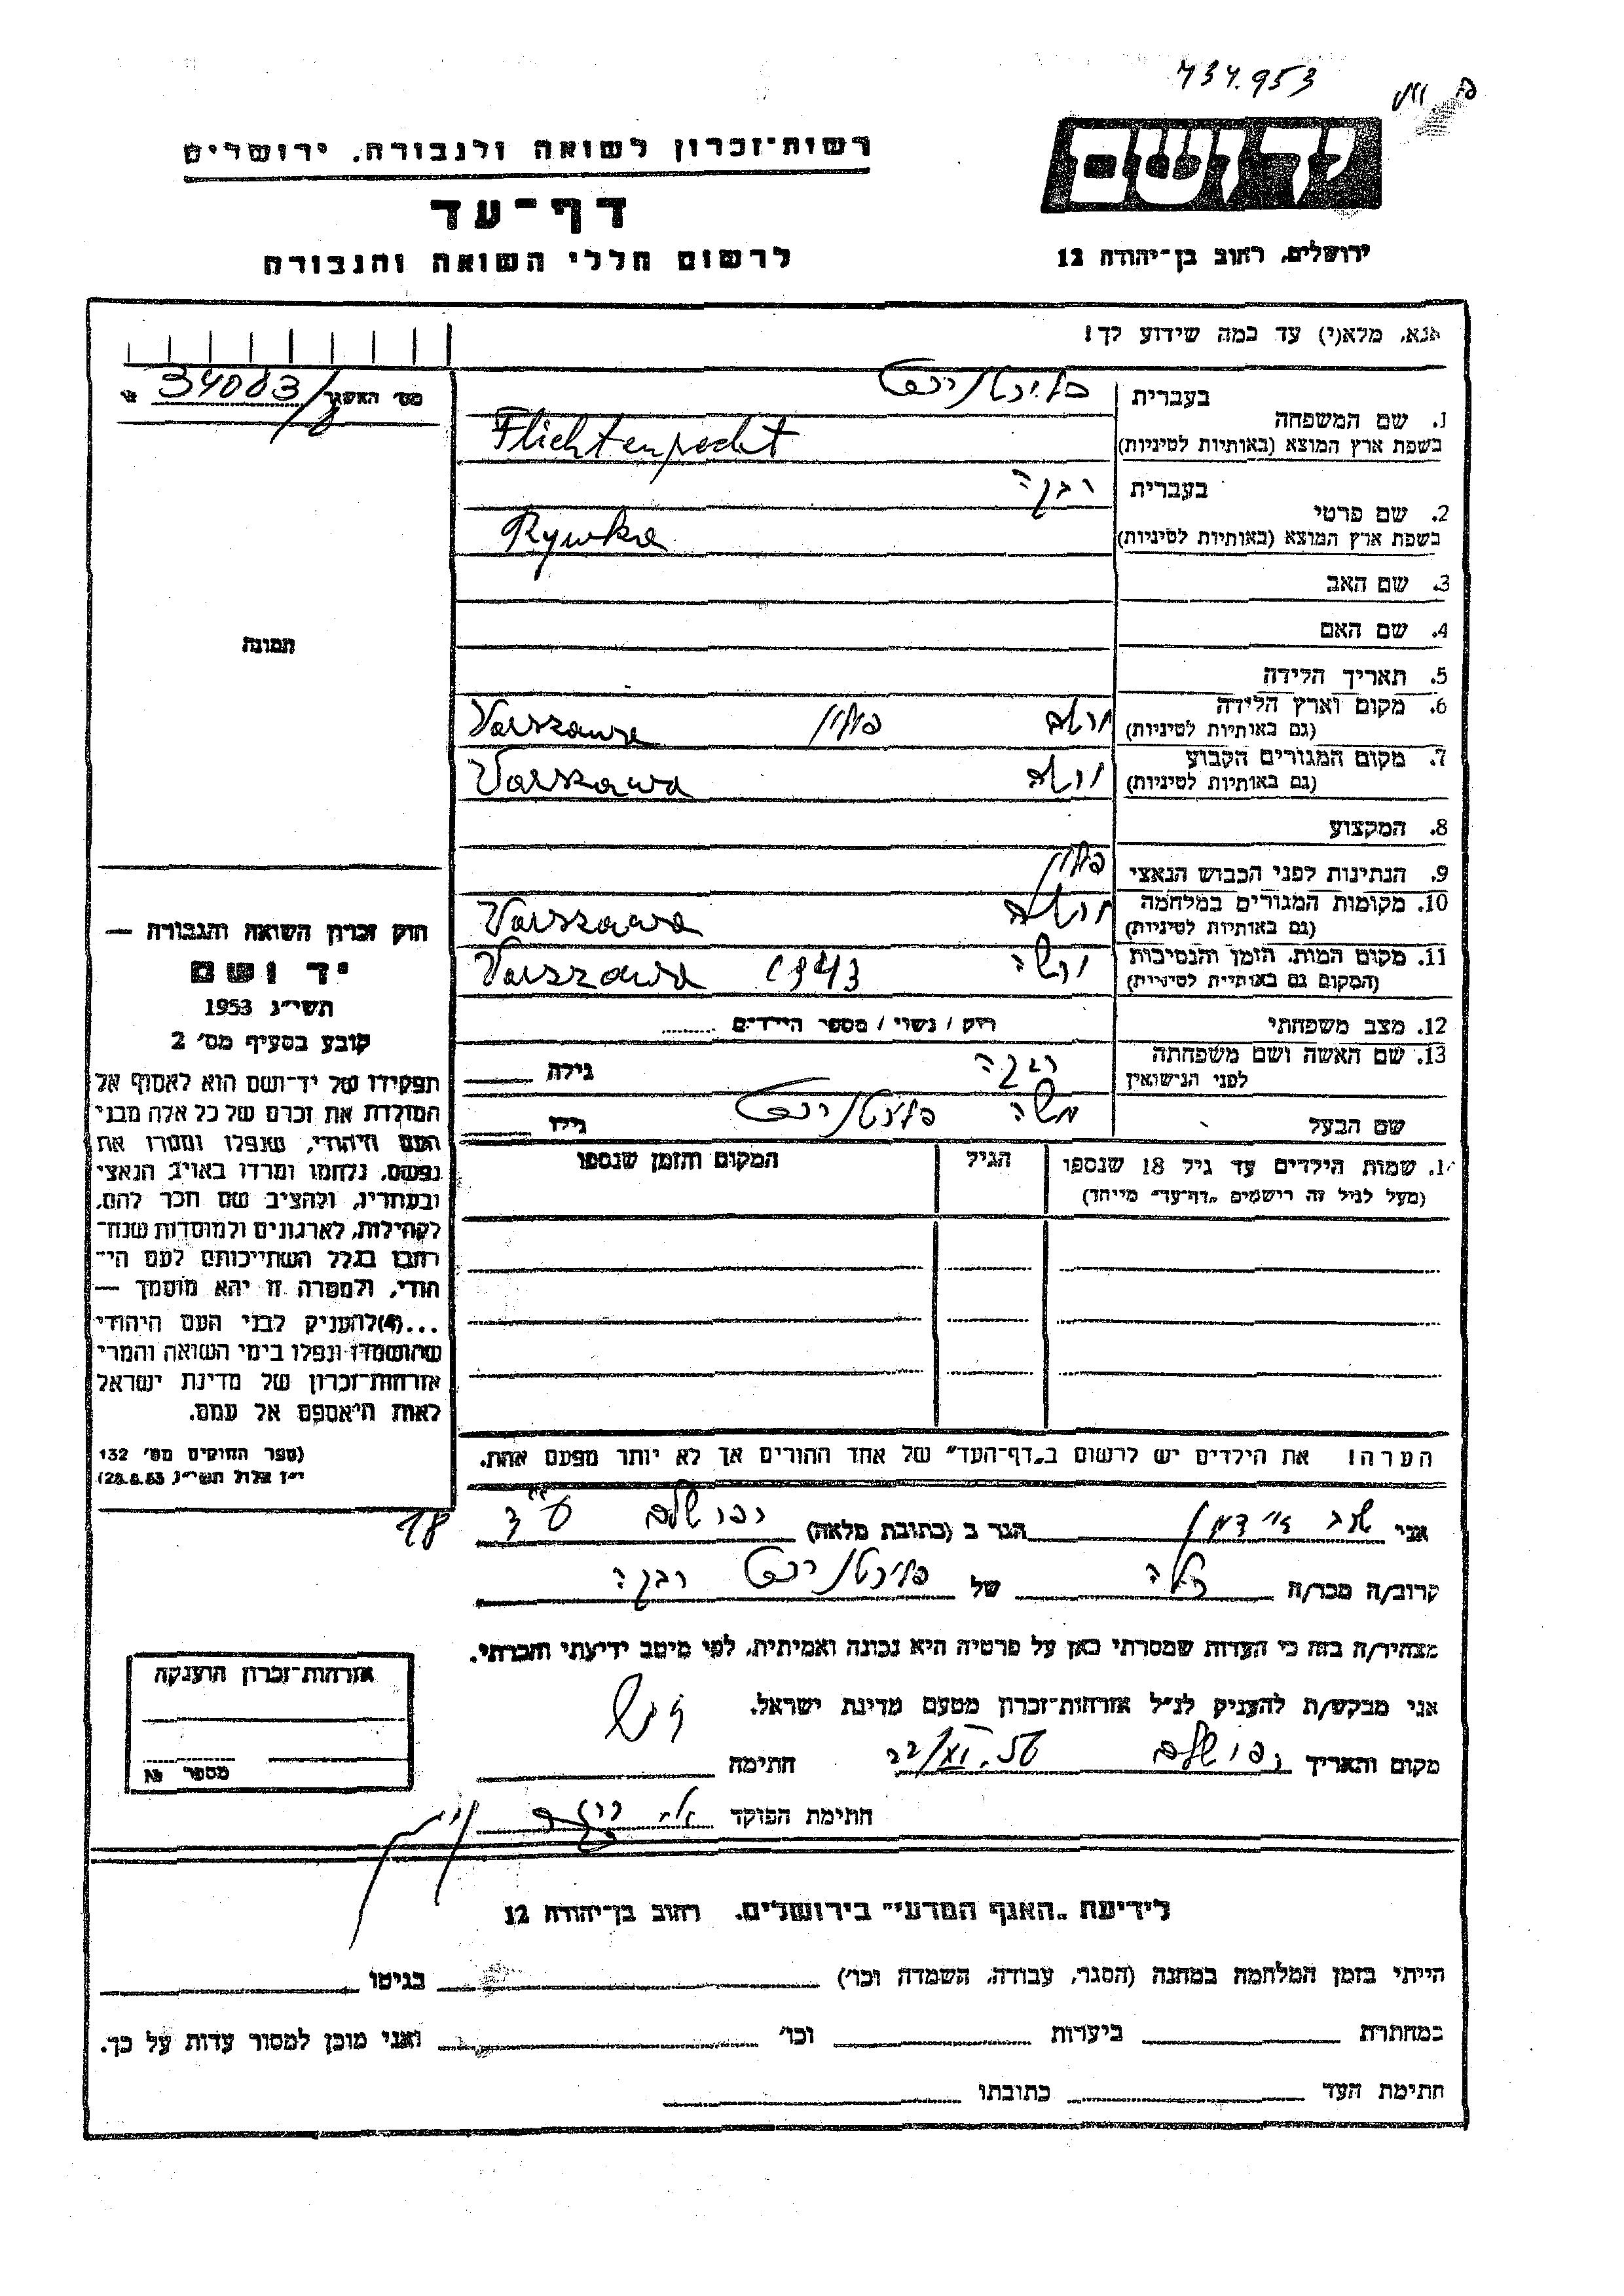 434.953
רשות־זכרון לשואה ולגבורה, ירושלים
דף־עד
לרשום חללי השואה והגבורה
יד ושם
ירושלים, רחוב בן־יהודה 12
אנא, מלא(י) עד כמה שידוע לך!
מס׳ האשנר 34003/8 №
בעברית
1. שם המשפחה
בשפת ארץ המוצא (באותיות לטיניות) Flichtenrecht
בעברית רבקה
2. שם פרטי
בשפת ארץ המוצא (באותיות לטיניות) Rywka
3. שם האב
4. שם האם
תמונה
5. תאריך הלידה
6. מקום וארץ הלידה ורשה פולין Varszawa
(גם באותיות לטיניות)
7. מקום המגורים הקבוע ורשה Varszawa
(גם באותיות לטיניות)
8. המקצוע
9. הנתינות לפני הכבוש הנאצי פולין
10. מקומות המגורים במלחמה ורשה Varszawa
(גם באותיות לטיניות)
11. מקום המות, הזמן והנסיבות ורשה 1943 Varszawa
(המקום גם באותיות לטיניות)
12. מצב משפחתי רוק / נשוי / מספר הילדים
13. שם האשה ושם משפחתה רבקה גילה
לפני הנישואין
שם הבעל משה גילו
14. שמות הילדים עד גיל 18 שנספו הגיל המקום והזמן שנספו
(מעל לגיל זה רישמים „דף־עד״ מיוחד)
הערה! את הילדים יש לרשום ב„דף־העד״ של אחד ההורים אך לא יותר מפעם אחת.
חוק זכרון השואה והגבורה —
יד ושם
תשי״ג 1953
קובע בסעיף מס׳ 2
תפקידו של יד־ושם הוא לאסוף אל
המולדת את זכרם של כל אלה מבני
העם היהודי, שנפלו ומסרו את
נפשם, נלחמו ומרדו באויב הנאצי
ובעוזריו, ולהציב שם וזכר להם,
לקהילות, לארגונים ולמוסדות שנח־
רבו בגלל השתייכותם לעם הי־
הודי, ולמטרה זו יהא מוסמך —
...(4)להעניק לבני העם היהודי
שהושמדו ונפלו בימי השואה והמרי
אזרחות־זכרון של מדינת ישראל
לאות היאספם אל עמם.
(ספר החוקים מס׳ 132
י״ז אלול תשי״ג 28.8.53)
אני הגר ב (כתובת מלאה) 18
קרוב/ה מכר/ה של רבקה
מצהיר/ה בזה כי העדות שמסרתי כאן על פרטיה היא נכונה ואמיתית, לפי מיטב ידיעתי והכרתי.
אני מבקש/ת להעניק לנ״ל אזרחות־זכרון מטעם מדינת ישראל.
מקום ותאריך חתימה
חתימת הפוקד
אזרחות־זכרון הוענקה
מספר №
לידיעת „האגף המדעי״ בירושלים, רחוב בן־יהודה 12
הייתי בזמן המלחמה במחנה (הסגר, עבודה, השמדה וכו׳) בגיטו
במחתרת ביערות וכו׳ ואני מוכן למסור עדות על כך.
חתימת העד כתובתו